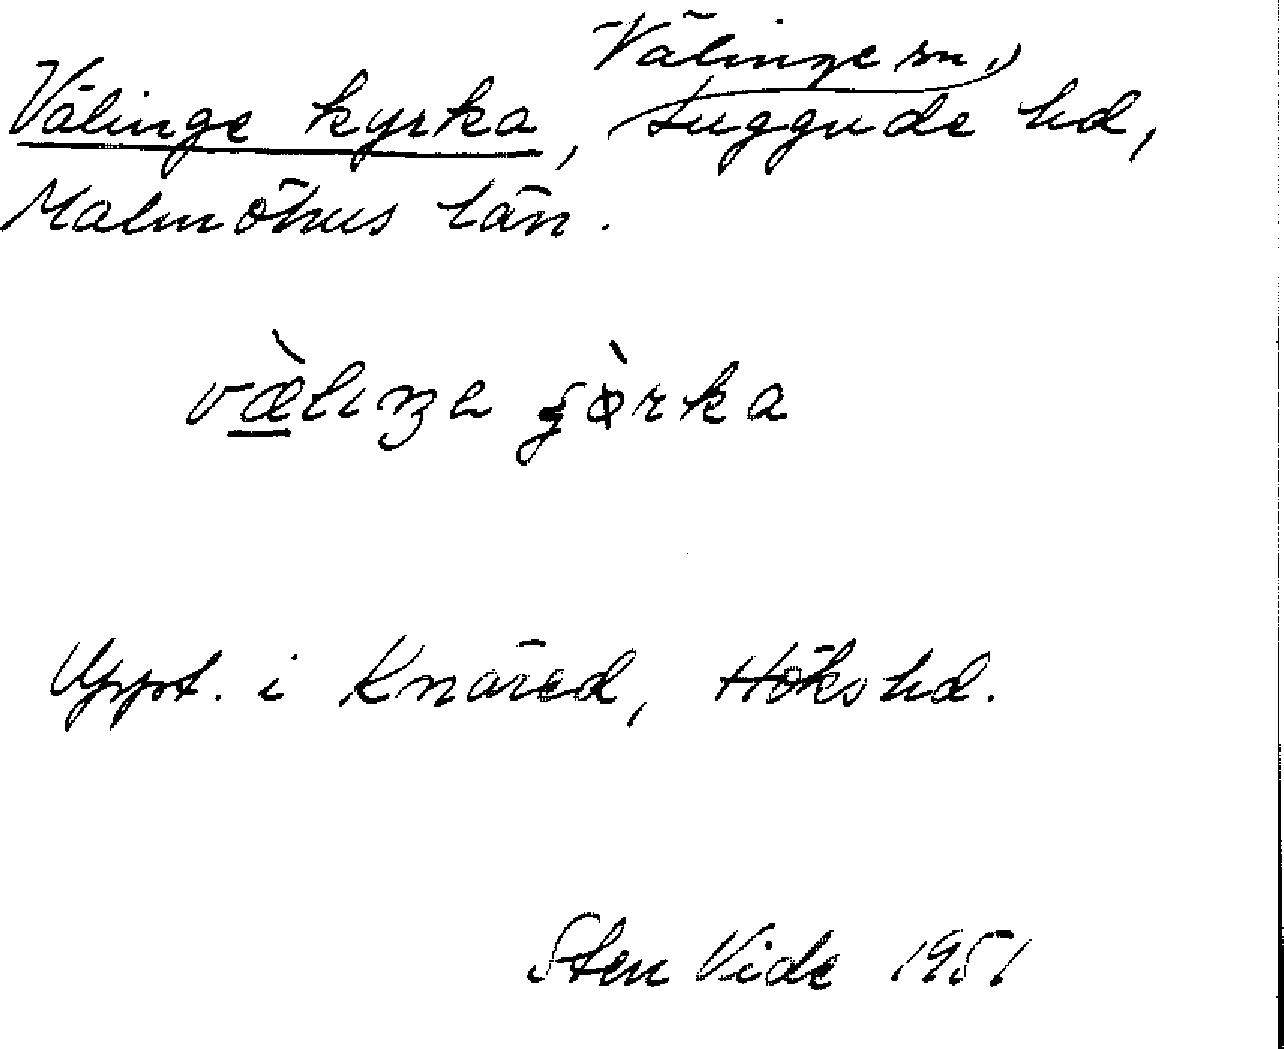 Välinge sn,
Välinge kyrka, Luggude hd,
Malmöhus län.
Uppt. i Knäred, Höks hd.
Sten Vide 1951